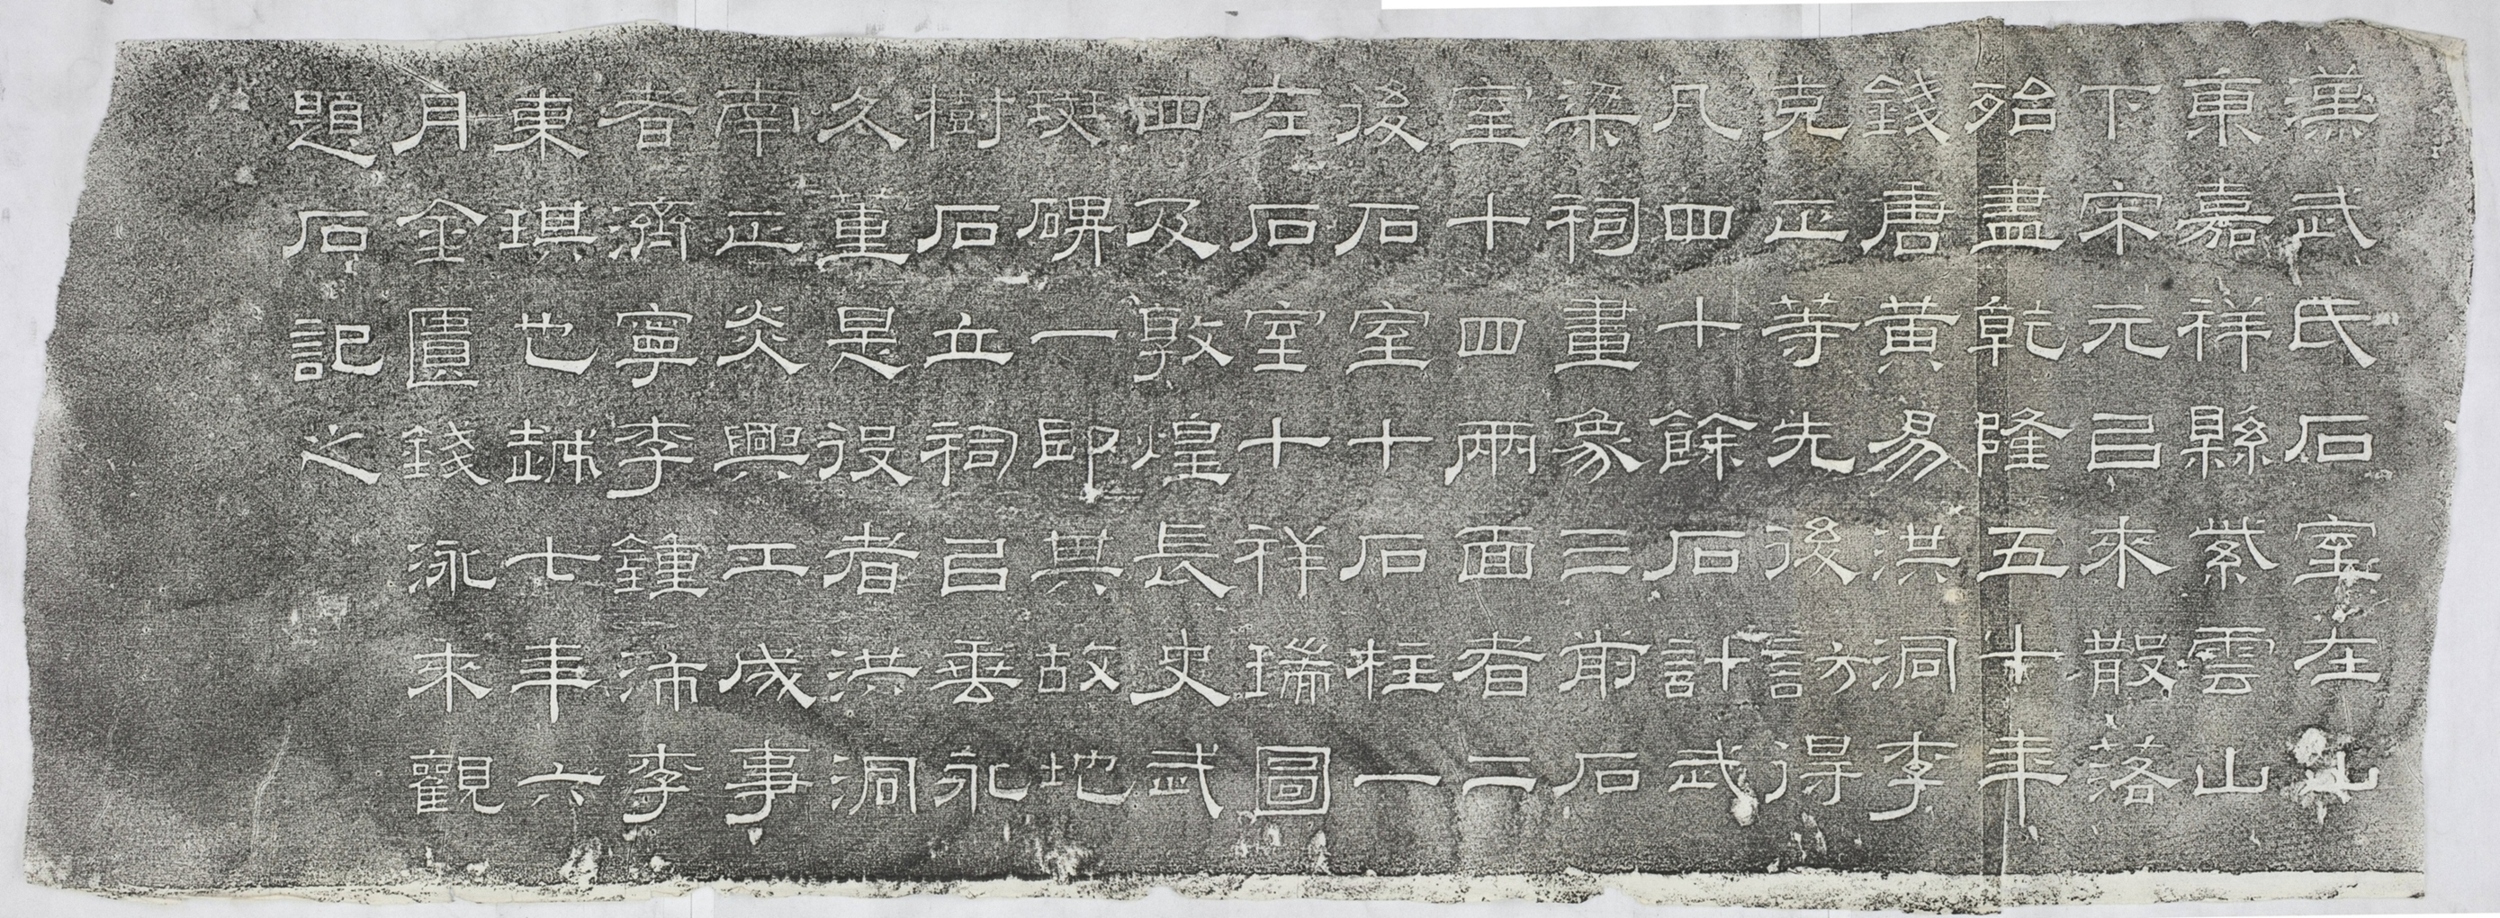 漢武氏石室在山
東嘉祥縣紫雲山
下宋元㠯來散落
殆盡乾隆五十年
錢唐黃易洪洞李
克正等先後訪得
凡四十餘石計武
梁祠畫象三前石
室十四兩面者二
後石室十石柱一
在石室十祥瑞圖
四及敦煌長史武
斑碑一即其故地
樹石立祠㠯垂永
久董是役者洪洞
南正炎興工成事
者濟寧李鍾沛李
東琪也越七年六
月金匱錢泳來觀
題石記之